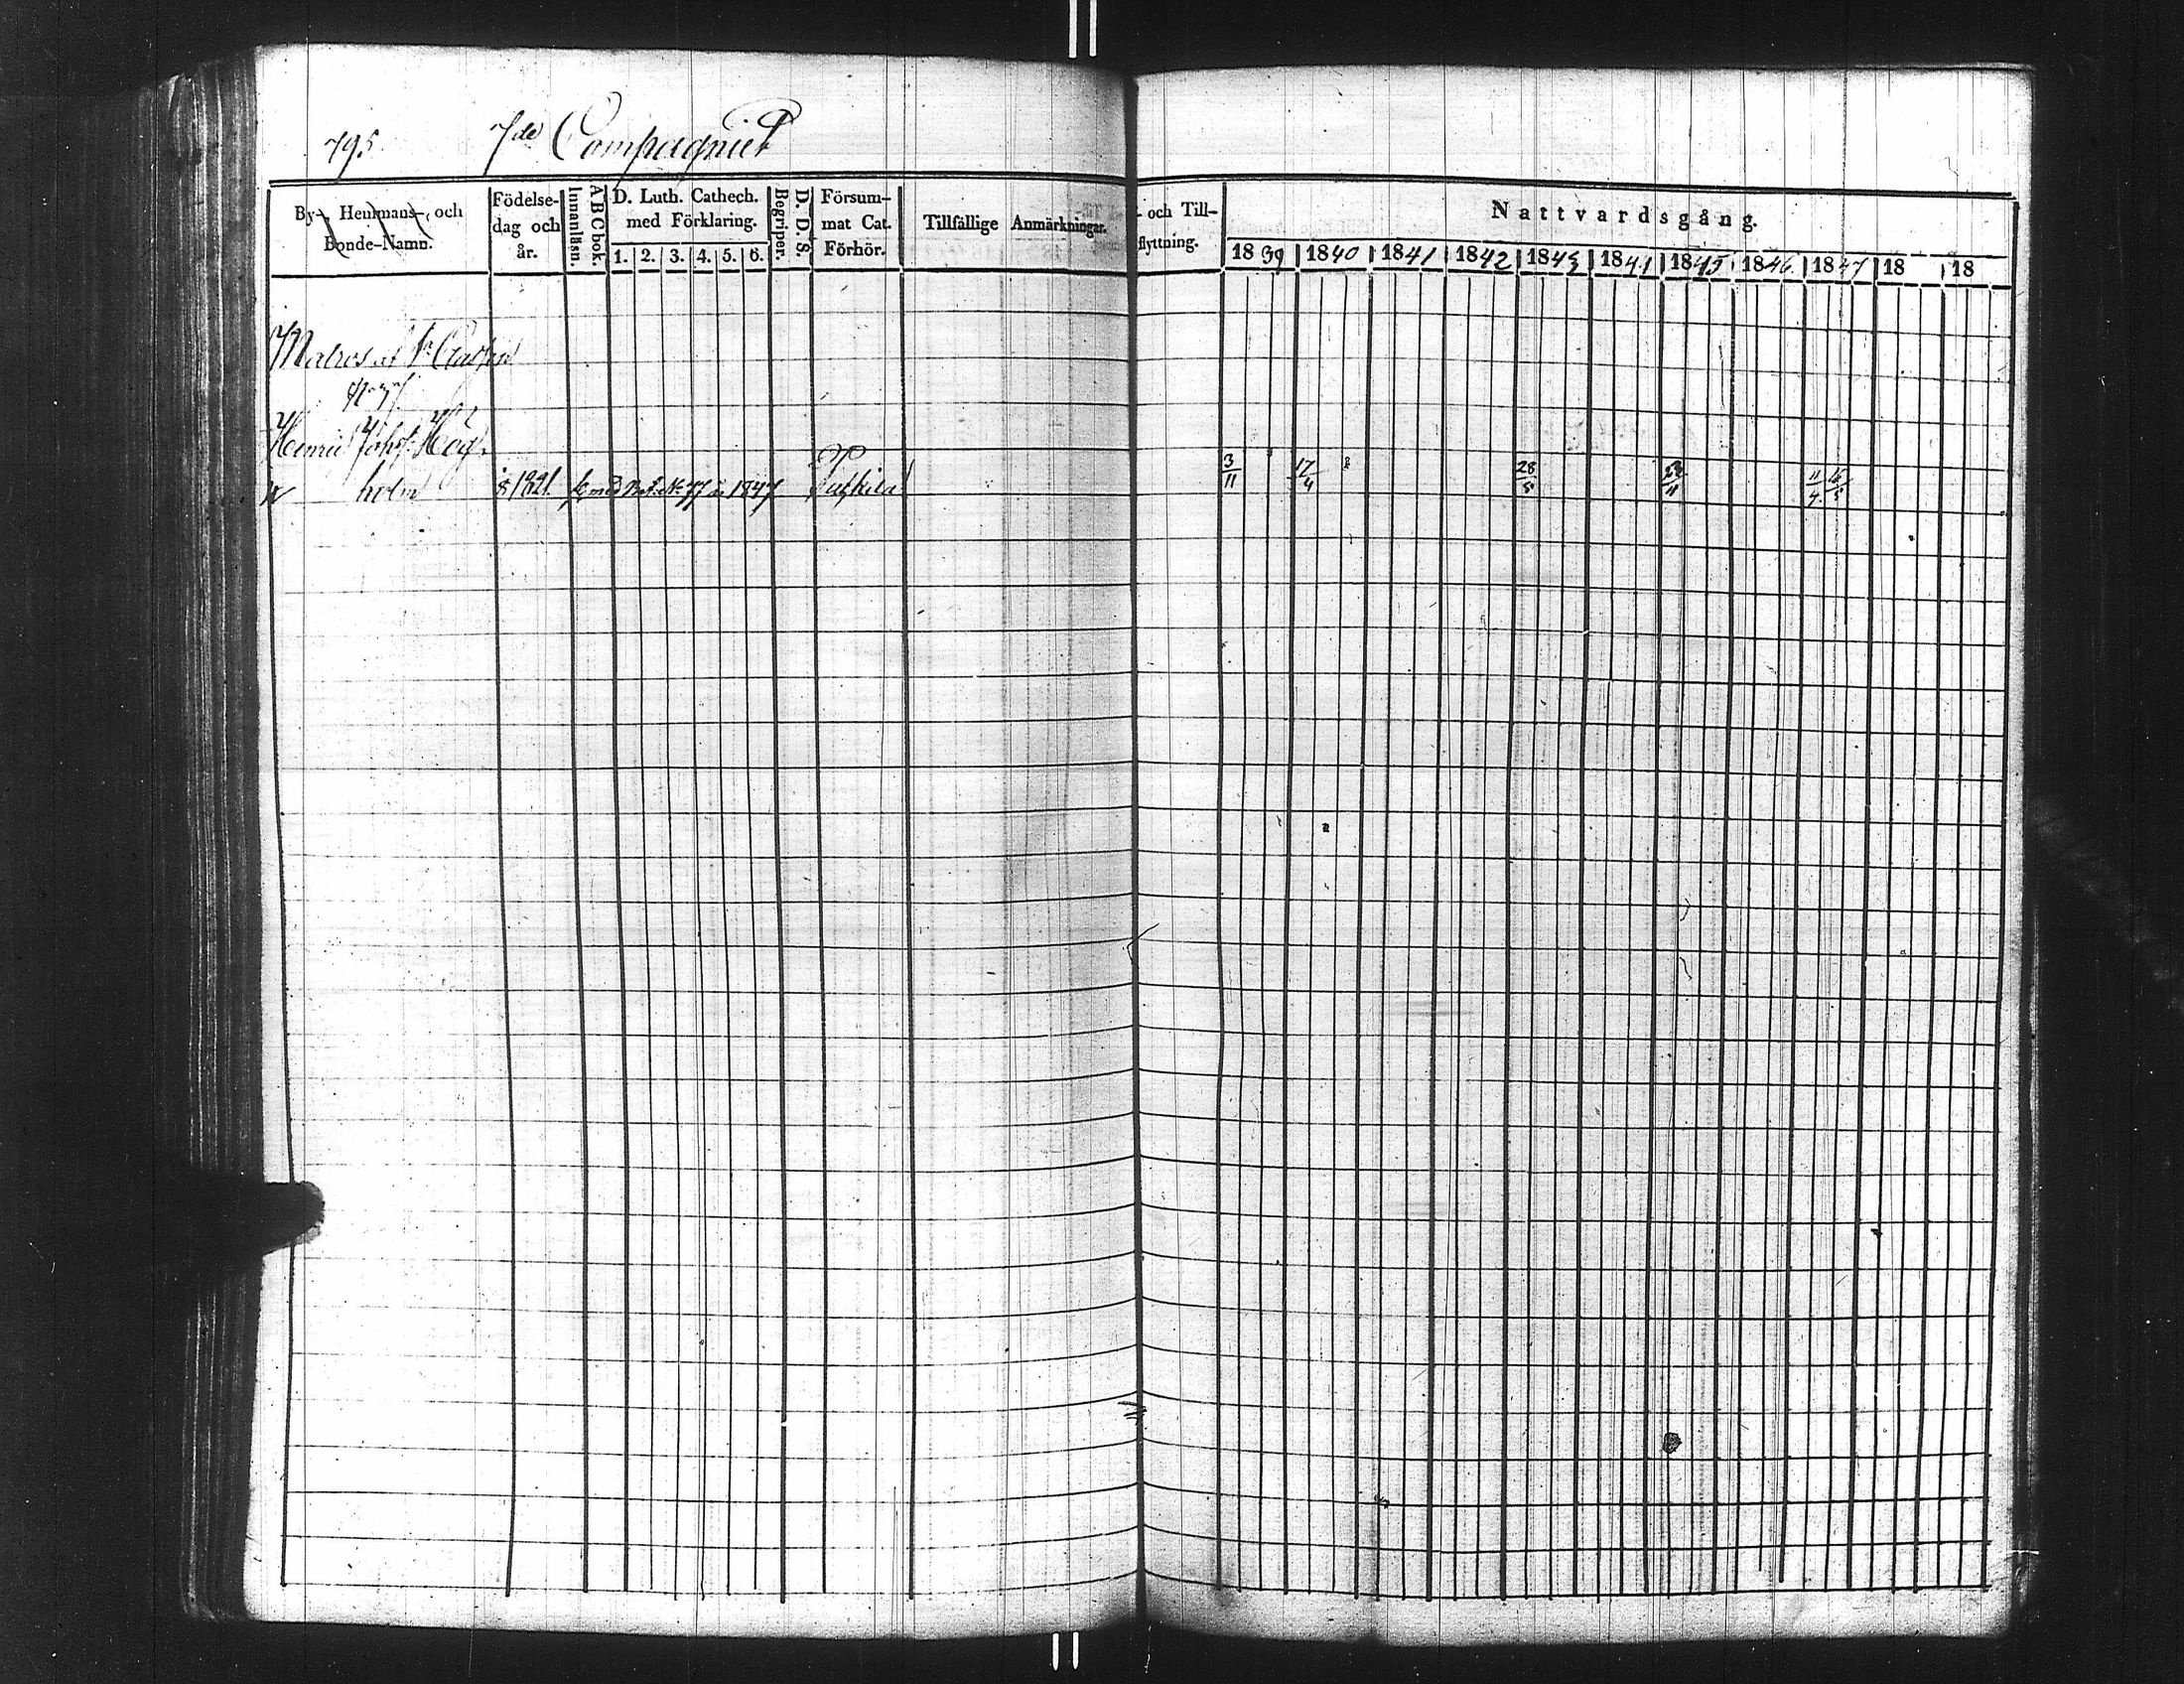 795. 7de Compagniet
By-, Hemmans-, och Bonde-Namn.
Födelse-dag och år.
Innanläsn.
A B C bok.
D. Luth. Cathech. med Förklaring.
1. 2. 3. 4. 5. 6.
Begriper.
D. D. S.
Försum-mat Cat. Förhör.
Tillfällige Anmärkningar.
- och Till-flyttning.
Nattvardsgång.
1839 1840 1841 1842 1843 1844 1845 1846 1847 18 18
Matros af 1a
No 77
Henric Johs. Hög-
holm 1821. No 77 1847
3/11 17/4 28/5 11/4 16/5